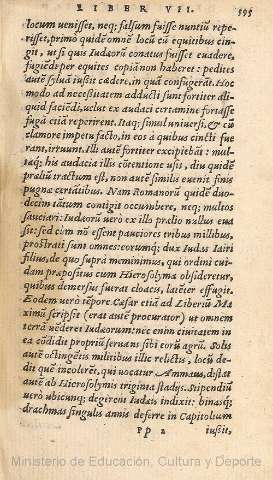 LIBER VII.
595
locum venisset, neq; falsum fuisse nuntiū repe-
risset, primo quidē omnē locū cū equitibus cin-
git, ut si quis Iudæorū conatus fuisset euadere,
fugiēdi per equites copia nō haberet: pedites
autē syluā iussit cædere, in quā confugerāt. Hoc
modo ad necessitatem adducti sunt fortiter ali-
quid faciēdi, uelut ex audaci certamine fortasse
fugā etiā reperirent. Itaq; simul uniuersi, & cū
clamore impetu facto, in eos à quibus cincti fue
rant, irruunt. Illi autē fortiter excipiebāt: mul-
taq; his audacia illis cōtentione usis, diu quidē
præliū tractum est, non autē similis euenit finis
pugnæ certātibus. Nam Romanorū quidē duo-
decim tātum contigit occumbere, neq; multos
sauciari: Iudæorū uerò ex illo prælio nullus eua
sit: sed cum nō essent pauciores tribus millibus,
prostrati sunt omnes: eorumq; dux Iudas Iairi
filius, de quo suprà meminimus, qui ordini cui-
dam præpositus cum Hierosolyma obsideretur,
quibus demersus fuerat cloacis, latēter effugit.
Eodem uerò tēpore Cæsar etiā ad Liberiū Ma
ximū scripsit (erat autē procurator) ut omnem
terrā uēderet Iudæorum: nec enim ciuitatem in
ea cōdidit propriū seruans sibi eorū agrū. Solis
autē octingētis militibus illic relictis, locū de-
dit quē incolerēt, qui uocatur Ammaus, distat
autē ab Hierosolymis triginta stadijs. Stipendiū
uerò ubicunq; degerent Iudæis indixit: binasq;
drachmas singulis annis deferre in Capitolium
Pp 2 iussit,
Ministerio de Educación, Cultura y Deporte